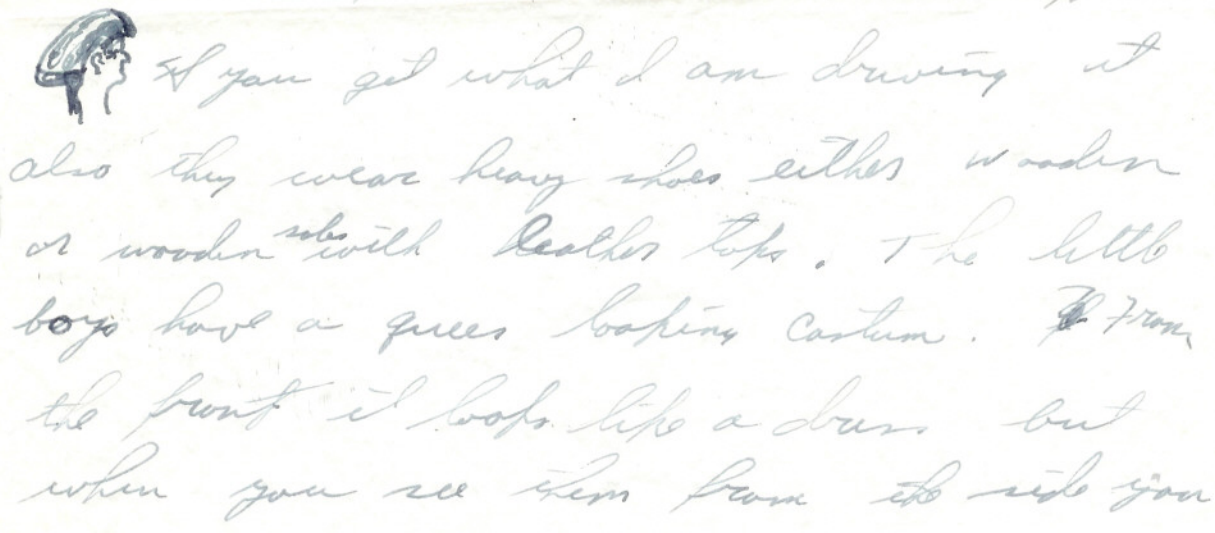 If you get what I am driving it
also they wear heavy shoes either wooden
or wooden soles with leather tops. The little
boys have a queer looking costum. From
the front it looks like a dress but
when you see them from the side you